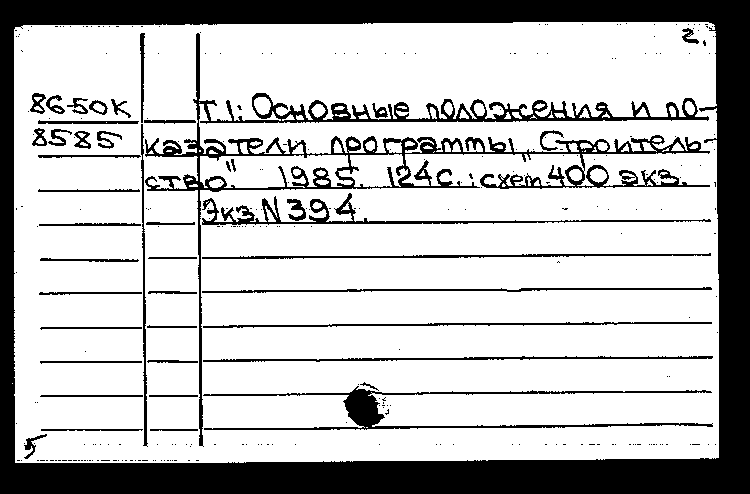 2.
86-50к Т.1: Основные положения и по-
8585 казатели программы „Строитель-
ство". 1985. 124с.: схем. 400 экз.
Экз. N 394.
5